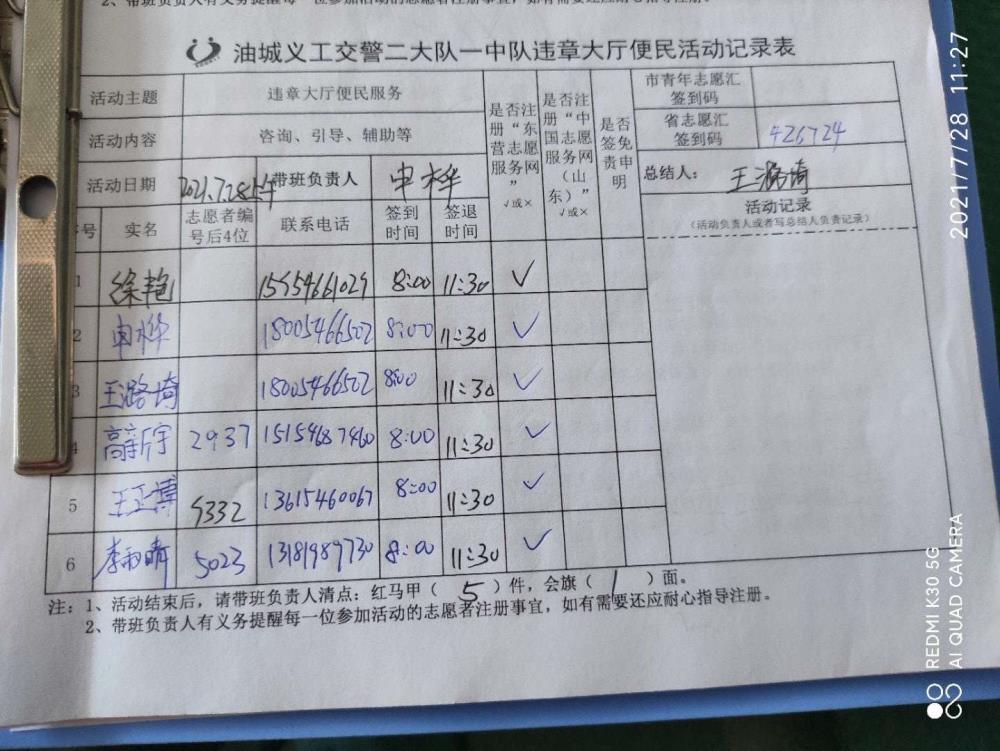 2、带班负责人有义务提醒每一位参加活动的志愿者注册事宜，如有需要还应耐心指导注册。
油城义工交警二大队一中队违章大厅便民活动记录表
活动主题 违章大厅便民服务 是否注册“东营志愿服务网” √或× 是否注册“中国志愿服务网（山东）” √或× 是否签免责申明 市青年志愿汇签到码
活动内容 咨询、引导、辅助等 省志愿汇签到码 426724
活动日期 2021.7.28上午 带班负责人 申桦 总结人： 王潞琦
序号 实名 志愿者编号后4位 联系电话 签到时间 签退时间 活动记录
（活动负责人或者写总结人负责记录）
1 徐艳 15954661029 8:00 11:30 √
2 申桦 18005466502 8:00 11:30 √
3 王潞琦 18005466502 8:00 11:30 √
4 高新宇 2937 15154687460 8:00 11:30 √
5 王正博 5332 13615460067 8:00 11:30 √
6 李雨晴 5023 13181989730 8:00 11:30 √
注：1、活动结束后，请带班负责人清点：红马甲（ 5 ）件，会旗（ 1 ）面。
2、带班负责人有义务提醒每一位参加活动的志愿者注册事宜，如有需要还应耐心指导注册。
2021/7/28 11:27
REDMI K30 5G
AI QUAD CAMERA